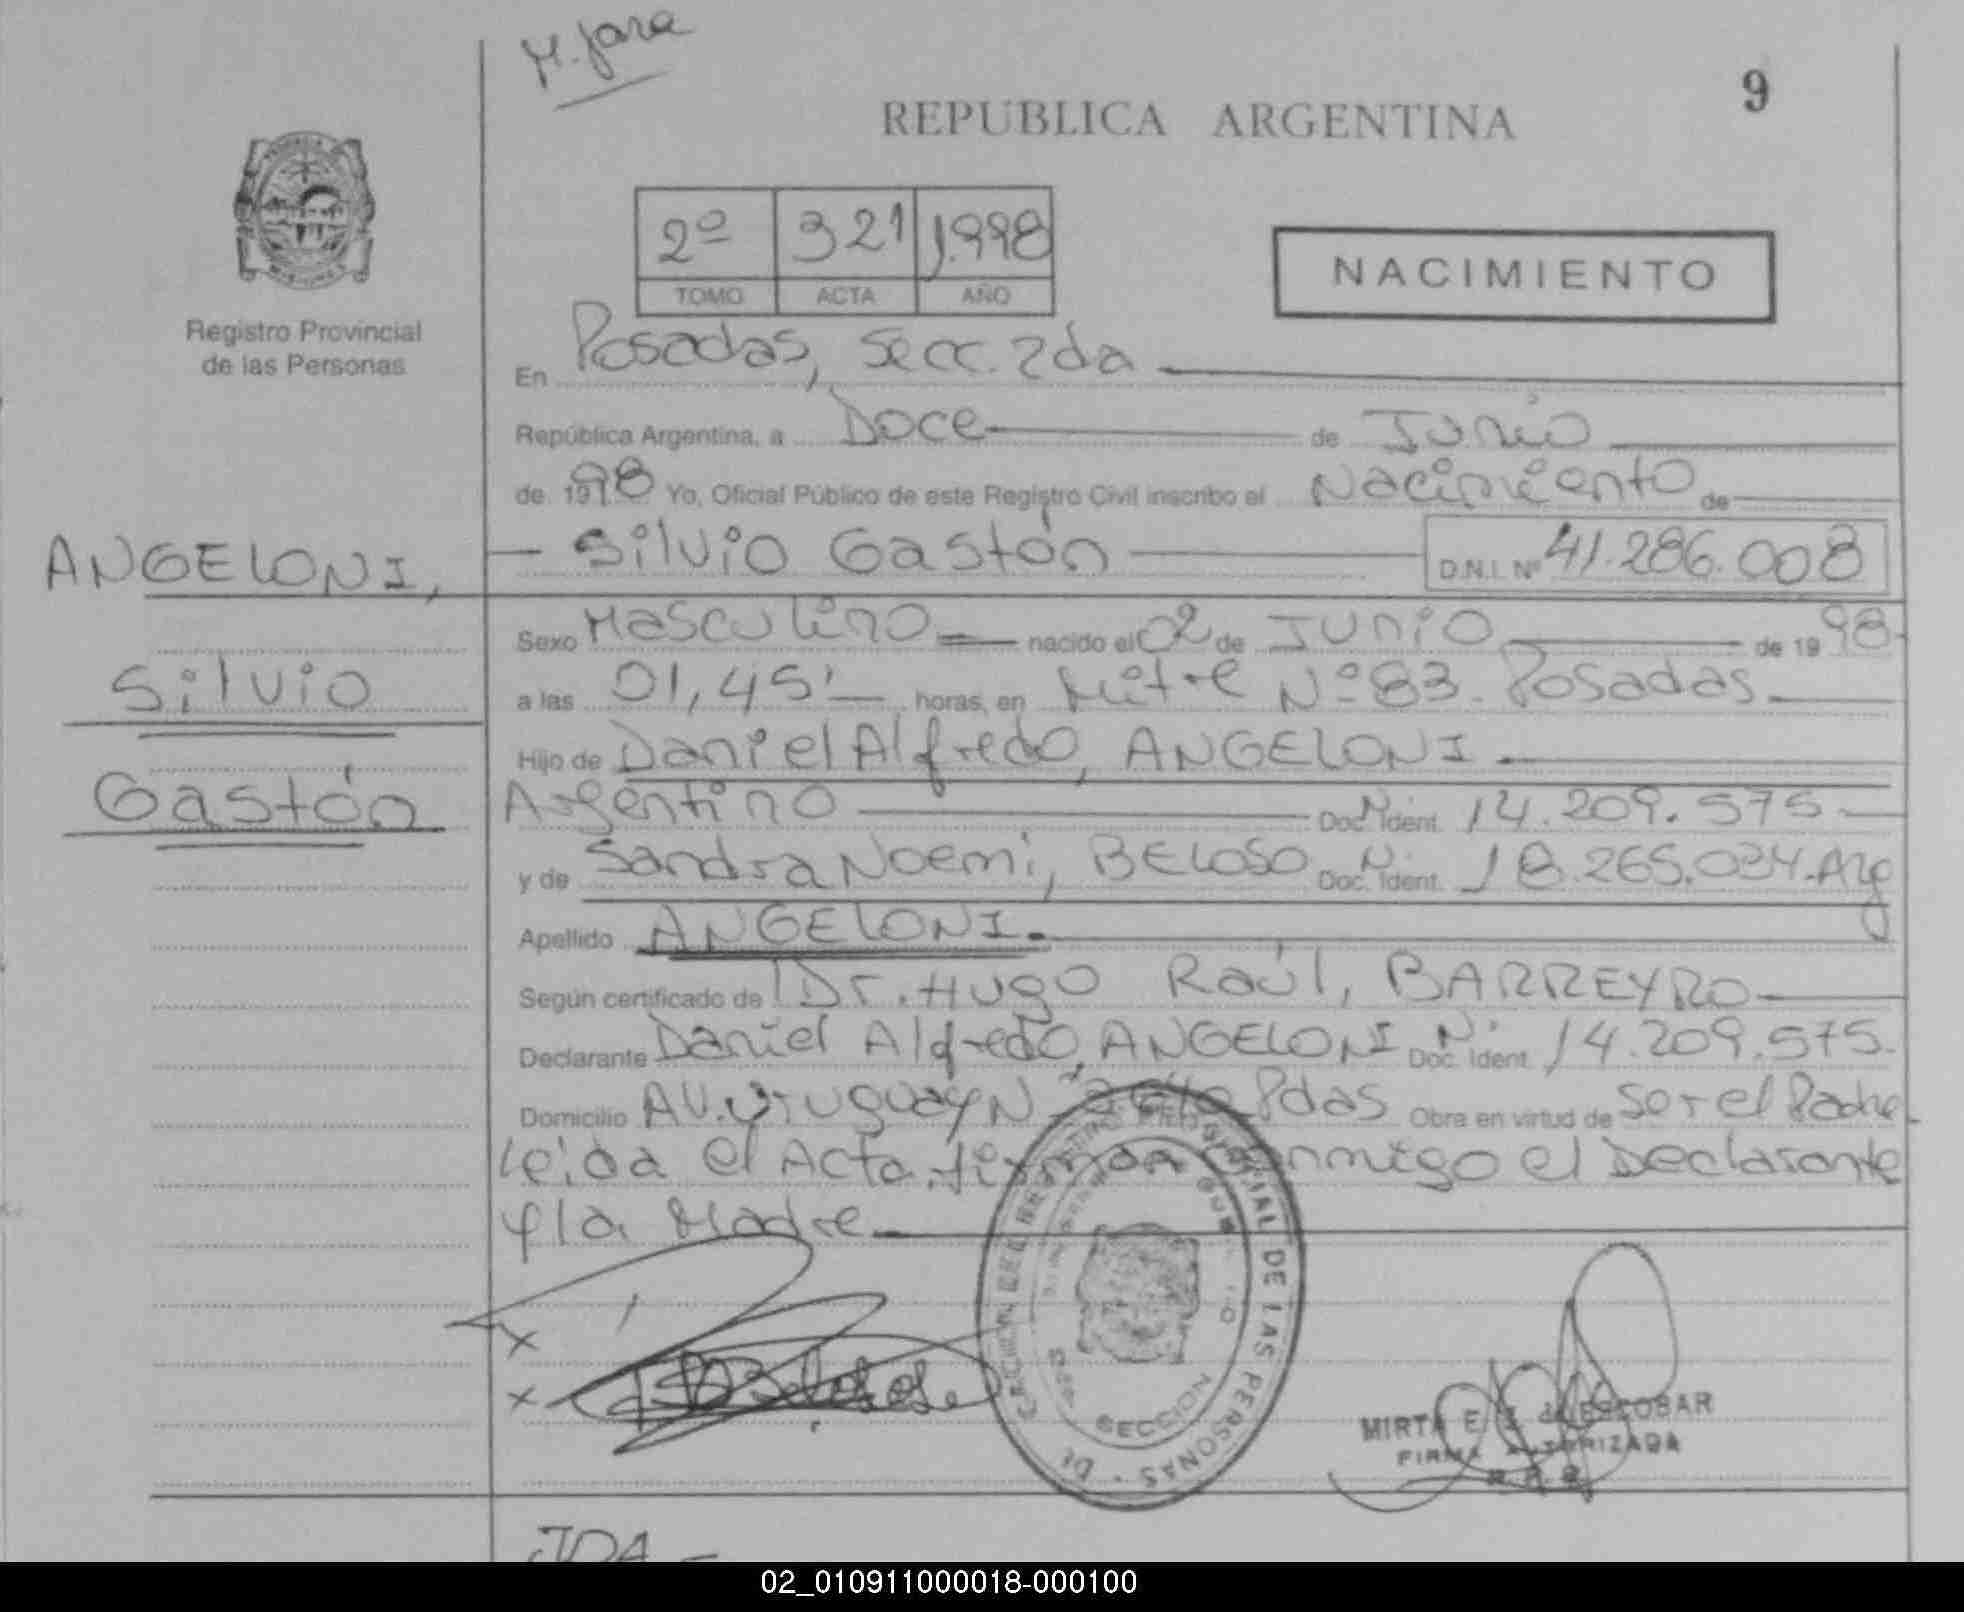 M. Jara
9
REPUBLICA ARGENTINA
2º 321 1.998
TOMO ACTA AÑO
NACIMIENTO
Registro Provincial
de las Personas
En Posadas, Secc. 2da
República Argentina, a Doce de Junio
de 1998 Yo, Oficial Público de este Registro Civil inscribo el Nacimiento de
Silvio Gastón D.N.I. Nº 41.286.008
ANGELONI,
Silvio
Gastón
Sexo Masculino nacido el 02 de Junio de 1998
a las 01,45' horas, en Mitre Nº 83. Posadas
Hijo de Daniel Alfredo, ANGELONI.
Argentino Doc. Ident. 14.209.575
y de Sandra Noemi, BELOSO Doc. Ident. 18.265.034. Arg
Apellido ANGELONI.
Según certificado de Dr. Hugo Raúl, BARREYRO
Declarante Daniel Alfredo, ANGELONI Doc. Ident. 14.209.575.
Domicilio AV. Uruguay N Pdas Obra en virtud de Ser el Padre
leida el Acta, firman conmigo el Declarante
y la Madre
DE LAS PERSONAS
SECCION
MIRTA E. de ESCOBAR
FIRMA AUTORIZADA
JDA
02_010911000018-000100